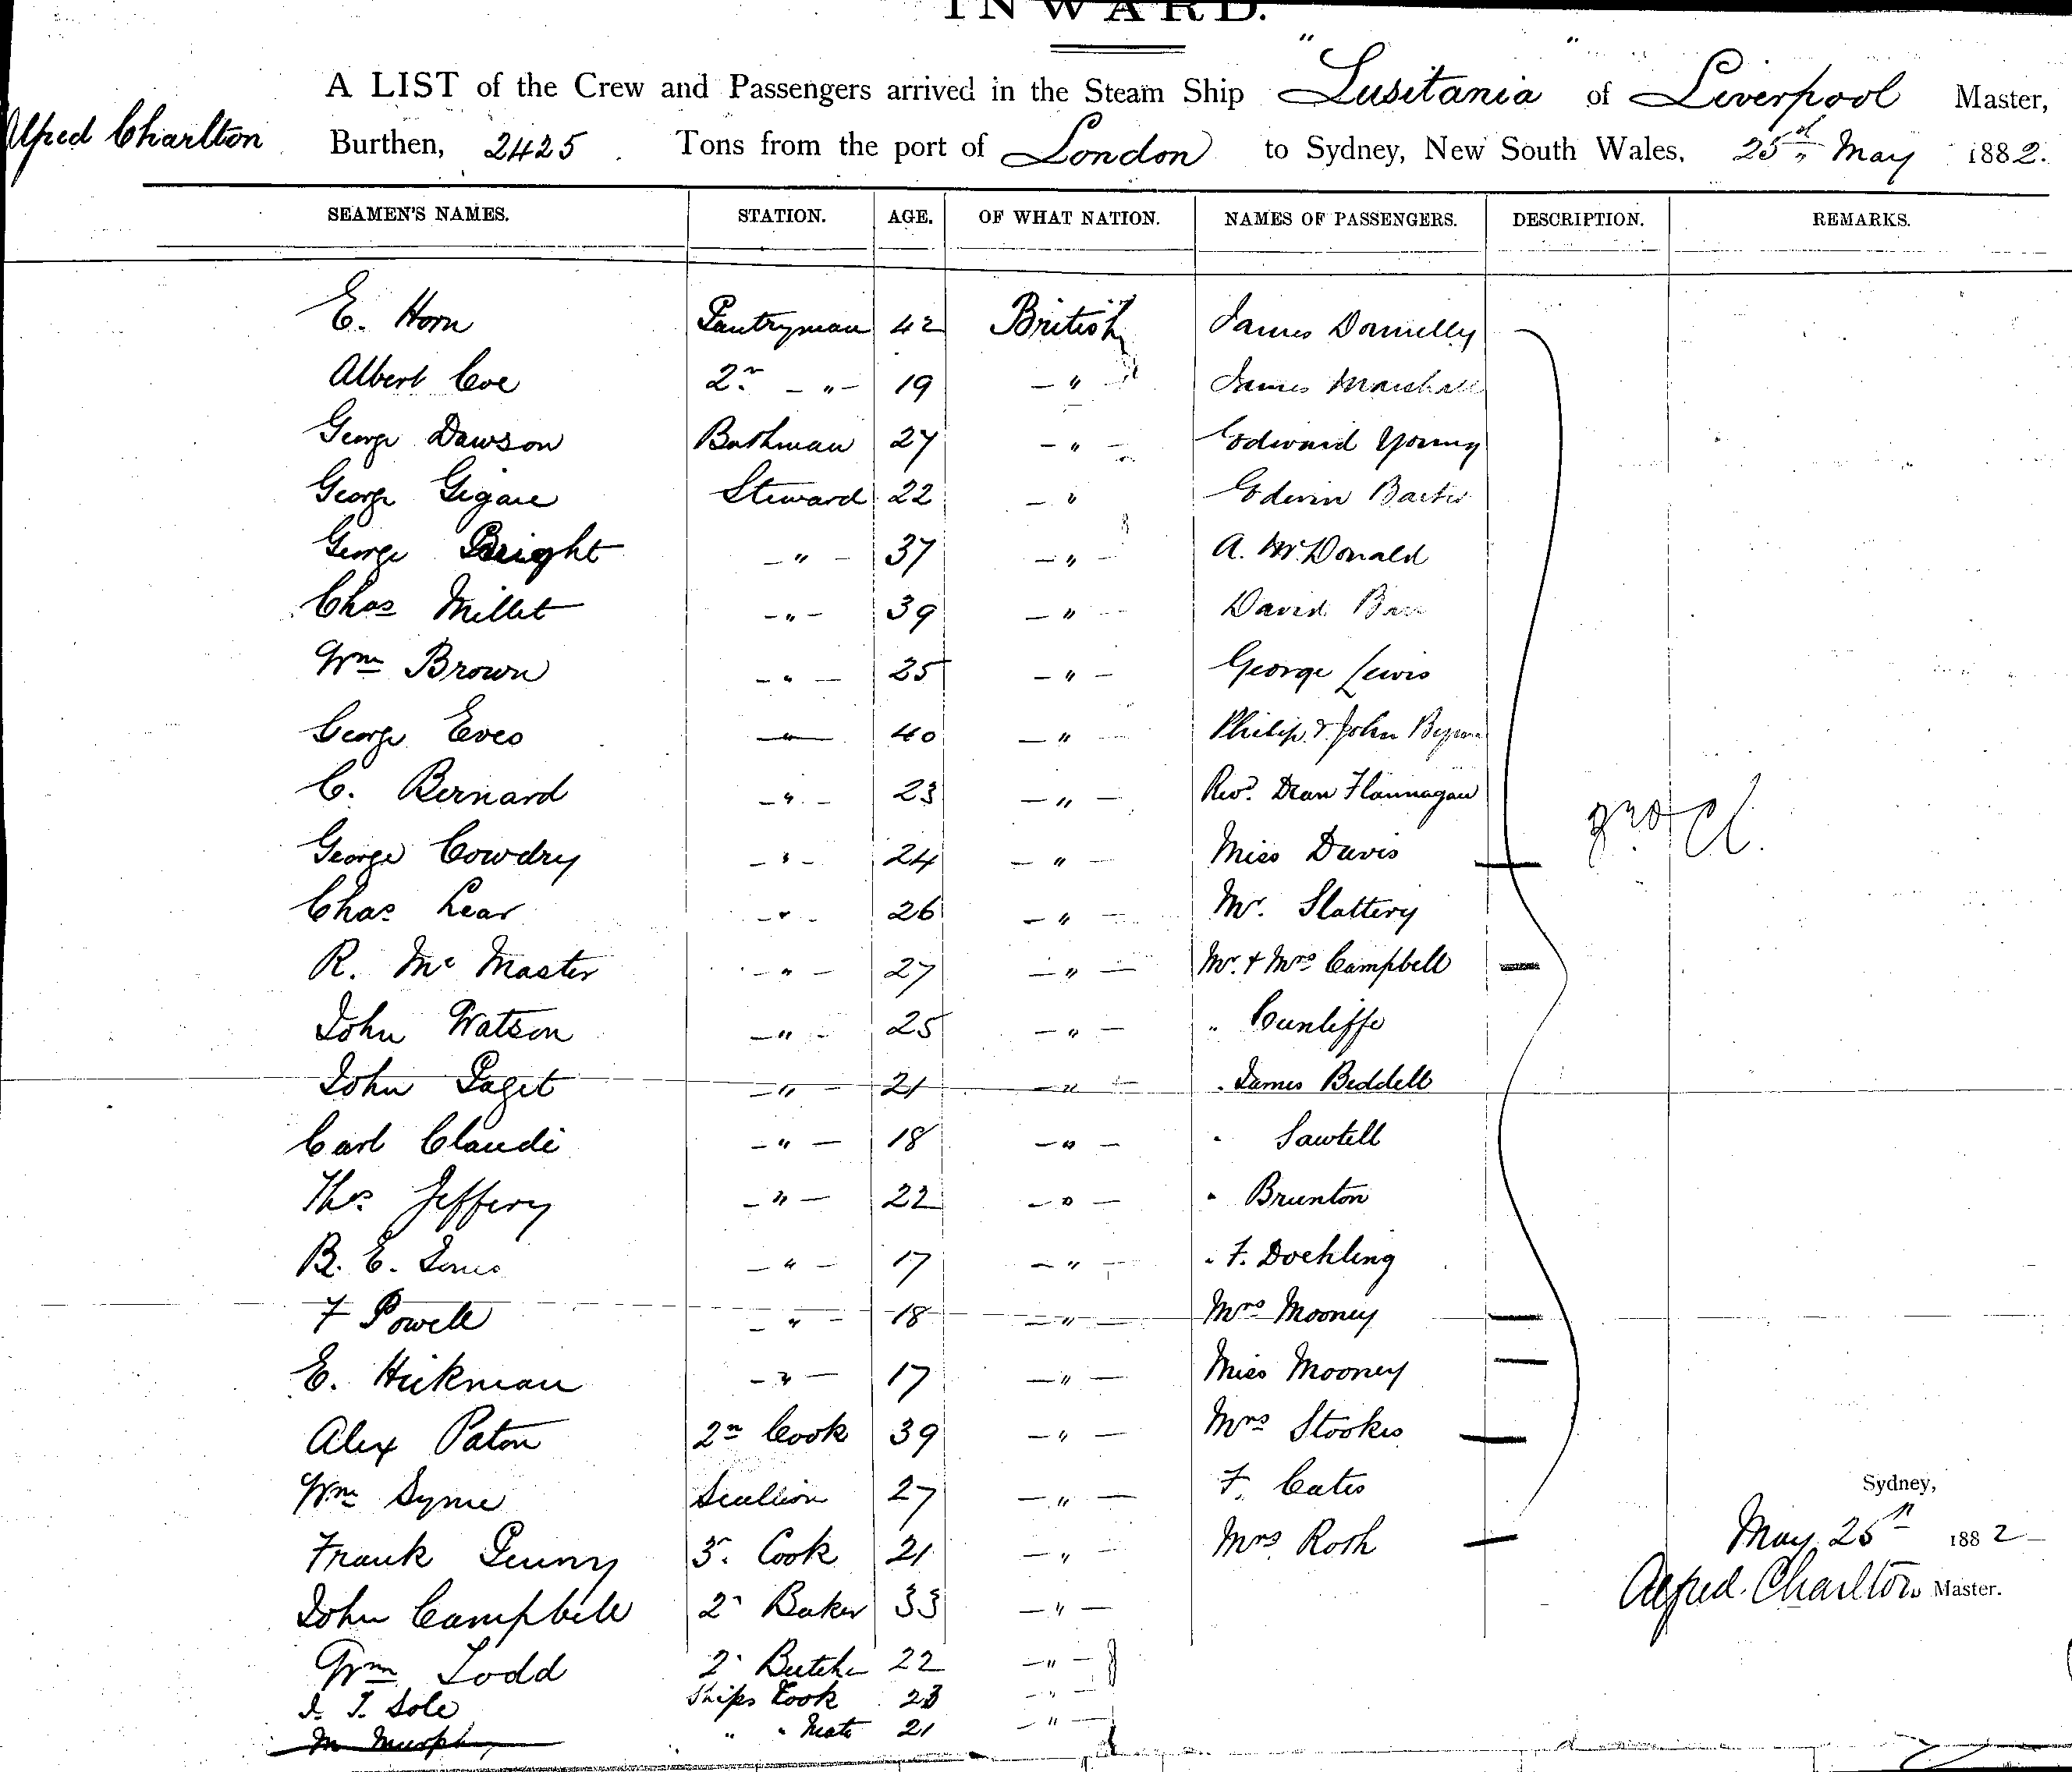 INWARD.
A LIST of the Crew and Passengers arrived in the Steam Ship "Lusitania" of Liverpool Master,
Alfred Charlton Burthen, 2425 Tons from the port of London to Sydney, New South Wales, 25th May 1882.
SEAMEN'S NAMES. STATION. AGE. OF WHAT NATION. NAMES OF PASSENGERS. DESCRIPTION. REMARKS.
E. Horn Pantryman 42 British James Donnelly
Albert Coe 2nd - " - 19 - " - James Marshall
George Dawson Bathman 27 - " - Edward Young
George Gigare Steward 22 - " Edwin Baxter
George Bright - " - 37 - " - A. McDonald
Chas Millet - " - 39 - " - David Barr
Wm Brown - " - 25 - " - George Lewis
George Eves - " - 40 - " - Philip & John
C. Bernard - " - 23 - " - Revd. Dean Flannagan
George Cowdry - " - 24 - " - Miss Davis
Chas Lear - " - 26 - " - Mr. Slattery
R. Mc Master - " - 27 - " - Mr. & Mrs Campbell
John Watson - " - 25 - " - " Cunliffe
John Paget - " - 21 - " - " James Beddell
Carl Claudi - " - 18 - " - " Sawtell
Thos Jeffery - " - 22 - " - " Brunton
B. E. Jones - " - 17 - " - " F. Doehling
F Powell - " - 18 - " - Mrs Mooney
E. Hickman - " - 17 - " - Miss Mooney
Alex Paton 2nd Cook 39 - " - Mrs Stookes
Wm Syme Scullion 27 - " - F. Cates
Frank Penny 3r. Cook 21 - " - Mrs. Roth
John Campbell 2n Baker 33 - " -
Wm Todd 2n Butcher 22 - " -
J. T. Sole Ships Cook 23 - " -
M Murphy " " Mate 21 - " -
Sydney,
May 25th 1882
Alfred Charlton Master.